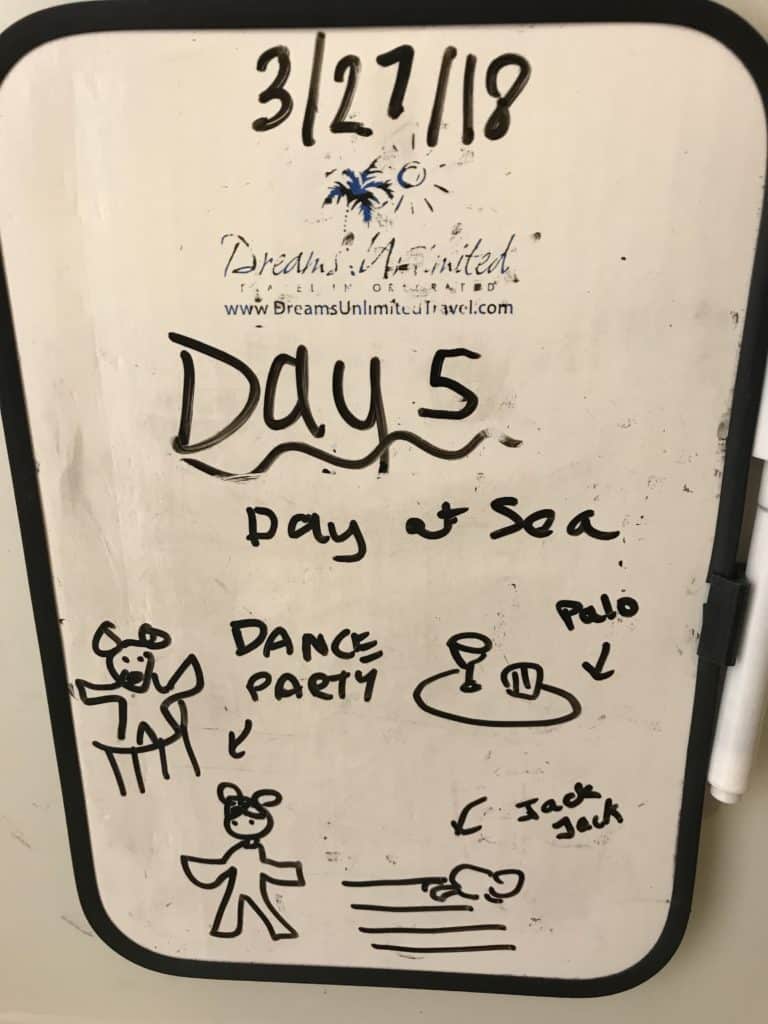 3/27/18
Dreams Unlimited
www.DreamsUnlimitedTravel.com
Day 5
Day at Sea
Palo
DANCE
PARTY
Jack
Jack